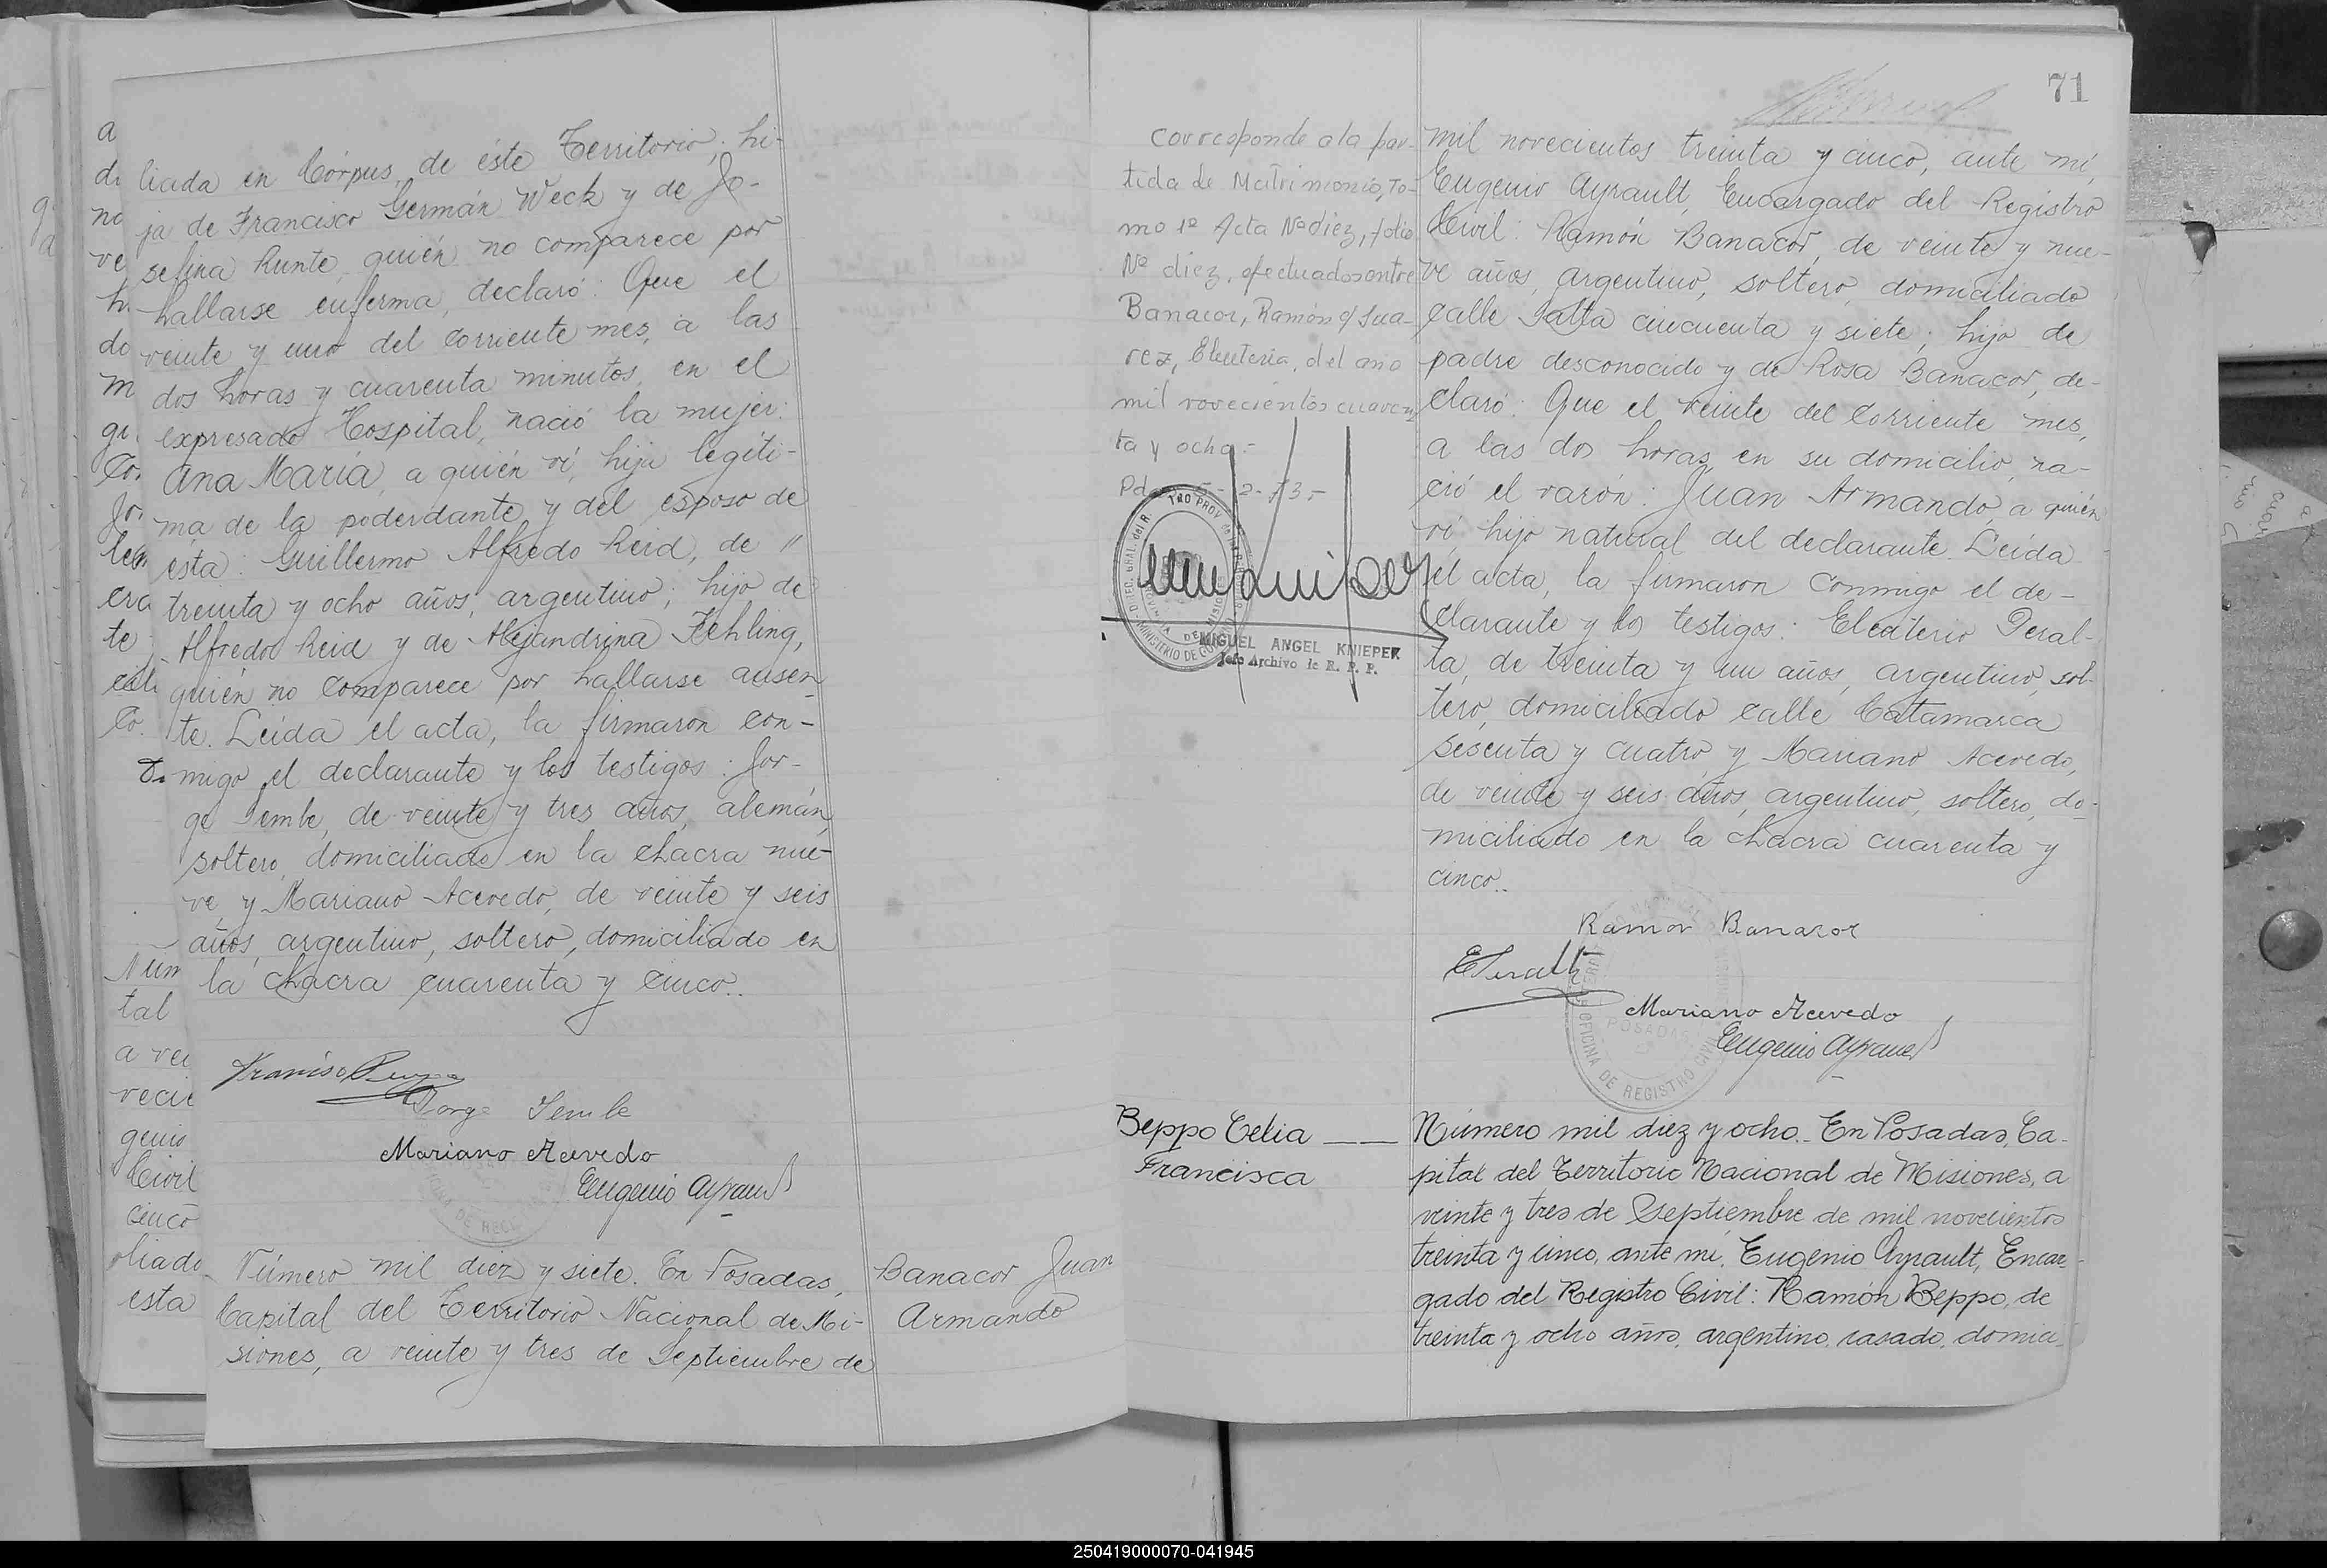 liada en Córpus, de éste Territorio; hi-
ja de Francisco Germán Weck y de Jo-
sefina Runte, quién no comparece por
hallarse enferma, declaró: Que el
veinte y uno del corriente mes, a las
dos horas y cuarenta minutos, en el
expresado Hospital, nació la mujer:
Ana María, a quién ví, hija legíti-
ma de la poderdante y del esposo de
ésta: Guillermo Alfredo Reid, de "
treinta y ocho años, argentino; hijo de
Alfredo Reid y de Alejandrina Fehling,
quién no comparece por hallarse ausen
te. Leída el acta, la firmaron con-
migo el declarante y los testigos: Jor-
ge Sembe, de veinte y tres años, alemán,
soltero, domiciliado en la chacra nue-
ve, y Mariano Acevedo, de veinte y seis
años, argentino, soltero, domiciliado en
la chacra cuarenta y cinco..
Jorge Sembe
Mariano Acevedo
Eugenio Ayrault
Número mil diez y siete. En Posadas,
Capital del Territorio Nacional de Mi-
siones, a veinte y tres de Septiembre de
Banacor Juan
Armando
71
Corresponde a la par-
tida de Matrimonio, To-
mo 1º Acta Nº diez, folio
Nº diez, efectuados entre
Banacor, Ramón c/ Sua-
rez, Eleuteria, del ano
mil novecientos cuaren
ta y ocho.-
MIGUEL ANGEL KNIEPER
Jefe Archivo de R. P. P.
mil novecientos treinta y cinco, ante mí,
Eugenio Ayrault, Encargado del Registro
Civil: Ramón Banacor, de veinte y nue-
ve años, argentino, soltero, domiciliado
calle Salta cincuenta y siete; hijo de
padre desconocido y de Rosa Banacor, de-
claró: Que el veinte del corriente mes,
a las dos horas, en su domicilio, na-
ció el varón: Juan Armando, a quién
ví, hijo natural del declarante. Leída
el acta, la firmaron conmigo el de-
clarante y los testigos: Eleuterio Peral-
ta, de treinta y un años, argentino, sol-
tero, domiciliado calle Catamarca
sesenta y cuatro, y Mariano Acevedo,
de veinte y seis años, argentino, soltero, do-
miciliado en la chacra cuarenta y
cinco..
Ramon Banacor
E Peralta
Mariano Acevedo
Eugenio Ayrault
OFICINA DE REGISTRO CIVIL
POSADAS
Beppo Celia
Francisca
Número mil diez y ocho.- En Posadas, Ca-
pital del Territorio Nacional de Misiones, a
veinte y tres de Septiembre de mil novecientos
treinta y cinco, ante mí, Eugenio Ayrault, Encar-
gado del Registro Civil: Ramón Beppo, de
treinta y ocho años, argentino, casado, domici-
250419000070-041945